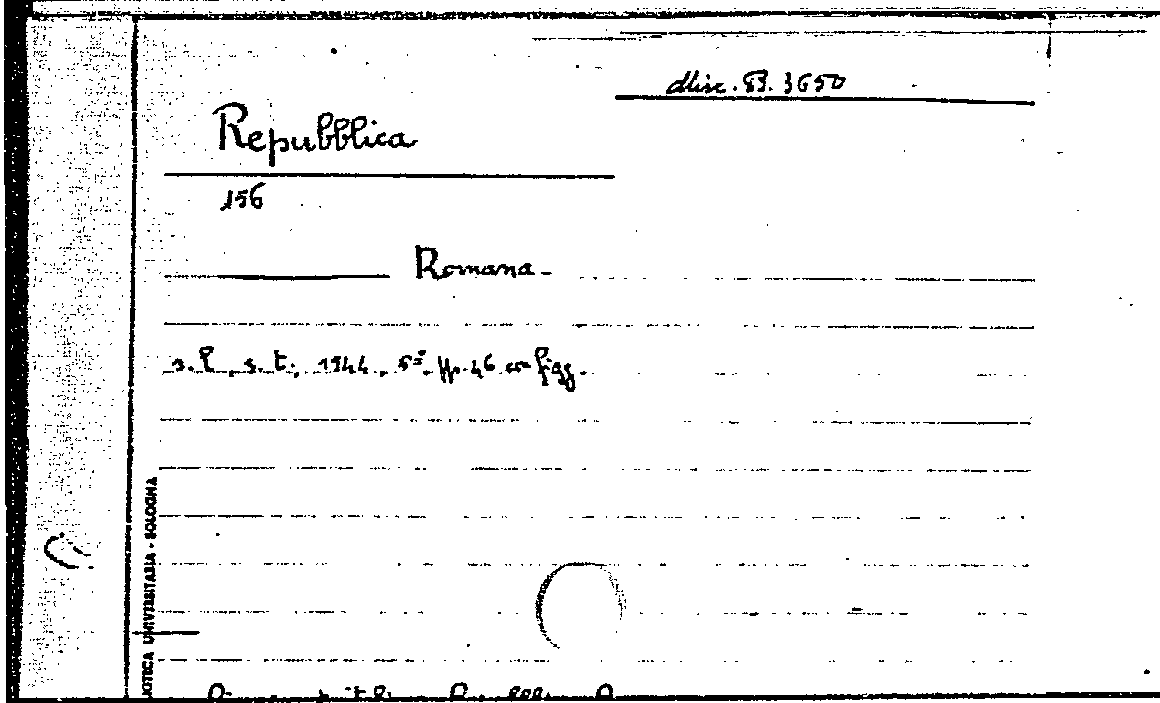 Misc. B. 3650
Repubblica
156
Romana -
s. l., s. t., 1944, 5°, pp. 46 con figg.
BIBLIOTECA UNIVERSITARIA - BOLOGNA